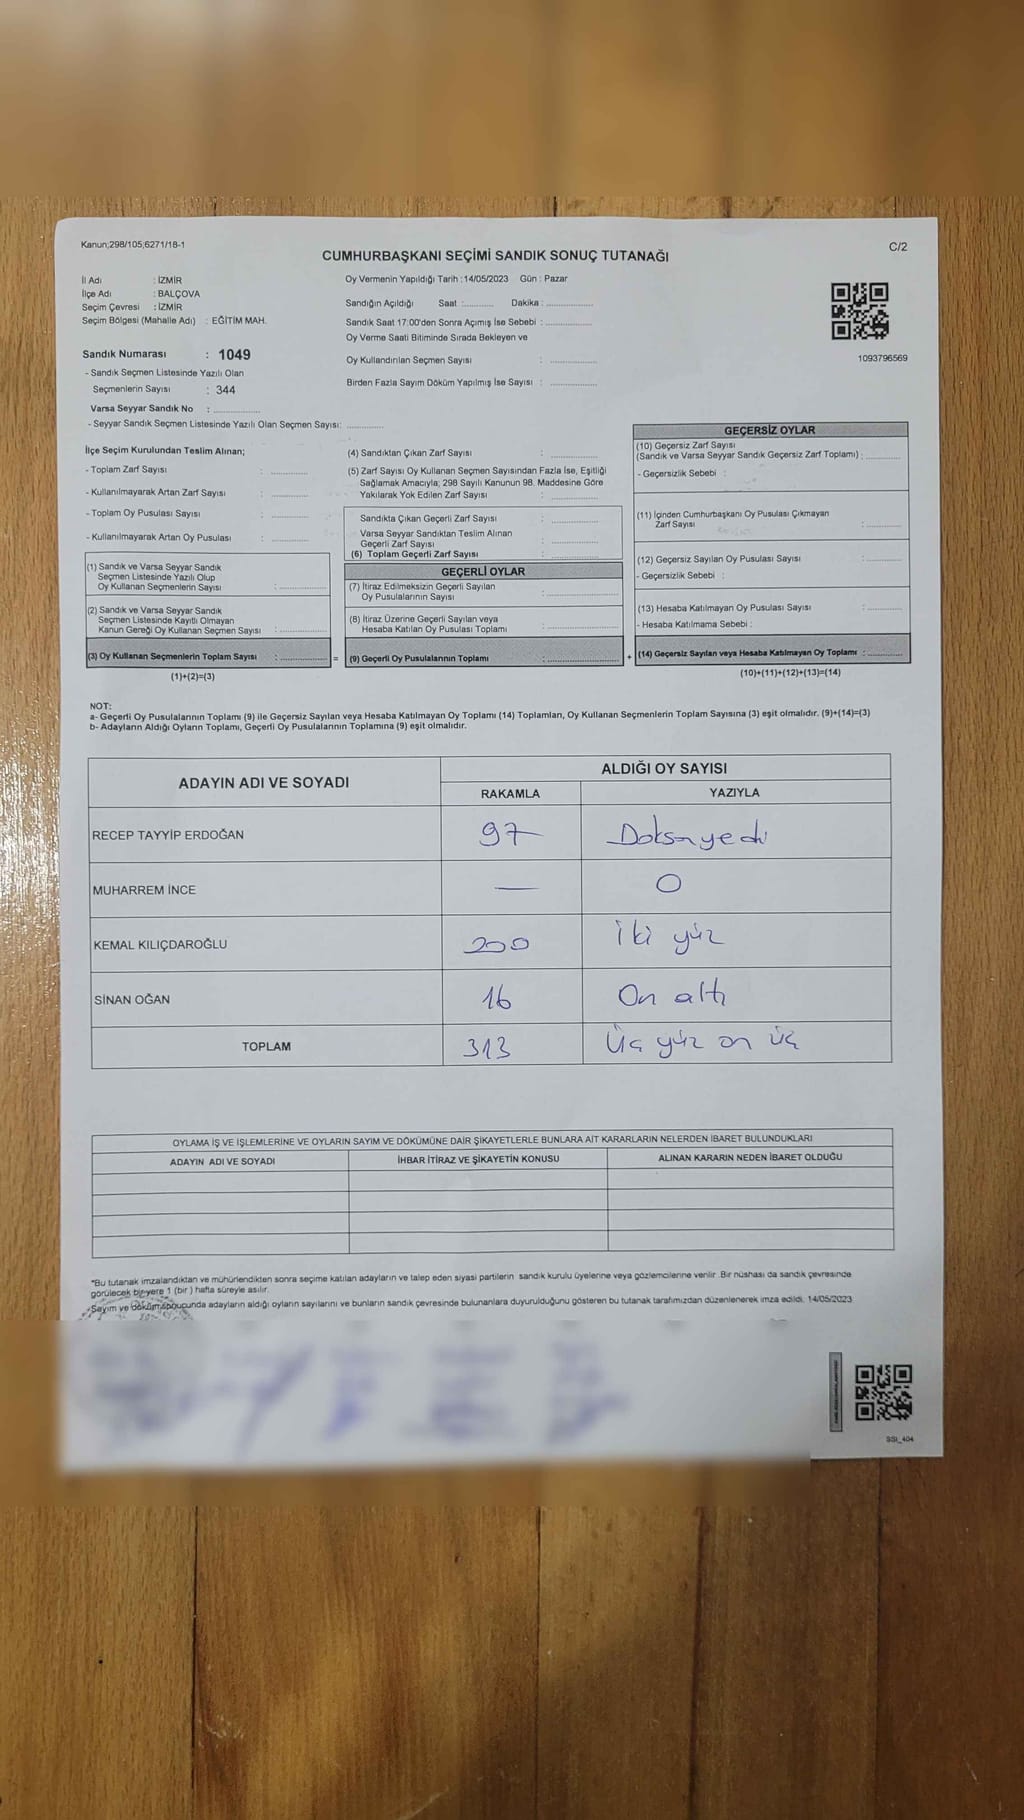 Kanun;298/105;6271/18-1
C/2
CUMHURBAŞKANI SEÇİMİ SANDIK SONUÇ TUTANAĞI
İl Adı : İZMİR
İlçe Adı : BALÇOVA
Seçim Çevresi : İZMİR
Seçim Bölgesi (Mahalle Adı) : EĞİTİM MAH.
Sandık Numarası : 1049
- Sandık Seçmen Listesinde Yazılı Olan
Seçmenlerin Sayısı : 344
Varsa Seyyar Sandık No : ................
- Seyyar Sandık Seçmen Listesinde Yazılı Olan Seçmen Sayısı: ............
Oy Vermenin Yapıldığı Tarih :14/05/2023 Gün : Pazar
Sandığın Açıldığı Saat :.......... Dakika : ................
Sandık Saat 17:00'den Sonra Açımış İse Sebebi : ................
Oy Verme Saati Bitiminde Sırada Bekleyen ve
Oy Kullandırılan Seçmen Sayısı : ................
Birden Fazla Sayım Döküm Yapılmış İse Sayısı : ................
1093796569
İlçe Seçim Kurulundan Teslim Alınan;
- Toplam Zarf Sayısı : ............
- Kullanılmayarak Artan Zarf Sayısı : ............
- Toplam Oy Pusulası Sayısı : ............
- Kullanılmayarak Artan Oy Pusulası : ............
(1) Sandık ve Varsa Seyyar Sandık
Seçmen Listesinde Yazılı Olup
Oy Kullanan Seçmenlerin Sayısı : ................
(2) Sandık ve Varsa Seyyar Sandık
Seçmen Listesinde Kayıtlı Olmayan
Kanun Gereği Oy Kullanan Seçmen Sayısı : ................
(3) Oy Kullanan Seçmenlerin Toplam Sayısı : ................ =
(1)+(2)=(3)
(4) Sandıktan Çıkan Zarf Sayısı : ................
(5) Zarf Sayısı Oy Kullanan Seçmen Sayısından Fazla İse, Eşitliği
Sağlamak Amacıyla; 298 Sayılı Kanunun 98. Maddesine Göre
Yakılarak Yok Edilen Zarf Sayısı : ................
Sandıkta Çıkan Geçerli Zarf Sayısı : ................
Varsa Seyyar Sandıktan Teslim Alınan
Geçerli Zarf Sayısı : ................
(6) Toplam Geçerli Zarf Sayısı : ................
GEÇERLİ OYLAR
(7) İtiraz Edilmeksizin Geçerli Sayılan
Oy Pusulalarının Sayısı : ................
(8) İtiraz Üzerine Geçerli Sayılan veya
Hesaba Katılan Oy Pusulası Toplamı : ................
(9) Geçerli Oy Pusulalarının Toplamı : ................ +
GEÇERSİZ OYLAR
(10) Geçersiz Zarf Sayısı
(Sandık ve Varsa Seyyar Sandık Geçersiz Zarf Toplamı) : ............
- Geçersizlik Sebebi :
(11) İçinden Cumhurbaşkanı Oy Pusulası Çıkmayan
Zarf Sayısı : ............
(12) Geçersiz Sayılan Oy Pusulası Sayısı : ............
- Geçersizlik Sebebi :
(13) Hesaba Katılmayan Oy Pusulası Sayısı : ............
- Hesaba Katılmama Sebebi :
(14) Geçersiz Sayılan veya Hesaba Katılmayan Oy Toplamı : ............
(10)+(11)+(12)+(13)=(14)
NOT:
a- Geçerli Oy Pusulalarının Toplamı (9) ile Geçersiz Sayılan veya Hesaba Katılmayan Oy Toplamı (14) Toplamları, Oy Kullanan Seçmenlerin Toplam Sayısına (3) eşit olmalıdır. (9)+(14)=(3)
b- Adayların Aldığı Oyların Toplamı, Geçerli Oy Pusulalarının Toplamına (9) eşit olmalıdır.
ADAYIN ADI VE SOYADI ALDIĞI OY SAYISI
RAKAMLA YAZIYLA
RECEP TAYYİP ERDOĞAN 97 Doksanyedi
MUHARREM İNCE — 0
KEMAL KILIÇDAROĞLU 200 İki yüz
SİNAN OĞAN 16 On altı
TOPLAM 313 Üç yüz on üç
OYLAMA İŞ VE İŞLEMLERİNE VE OYLARIN SAYIM VE DÖKÜMÜNE DAİR ŞİKAYETLERLE BUNLARA AİT KARARLARIN NELERDEN İBARET BULUNDUKLARI
ADAYIN ADI VE SOYADI İHBAR İTİRAZ VE ŞİKAYETİN KONUSU ALINAN KARARIN NEDEN İBARET OLDUĞU
*Bu tutanak imzalandıktan ve mühürlendikten sonra seçime katılan adayların ve talep eden siyasi partilerin sandık kurulu üyelerine veya gözlemcilerine verilir. Bir nüshası da sandık çevresinde
görülecek bir yere 1 (bir ) hafta süreyle asılır.
*Sayım ve döküm sonucunda adayların aldığı oyların sayılarını ve bunların sandık çevresinde bulunanlara duyurulduğunu gösteren bu tutanak tarafımızdan düzenlenerek imza edildi. 14/05/2023
SSI_404